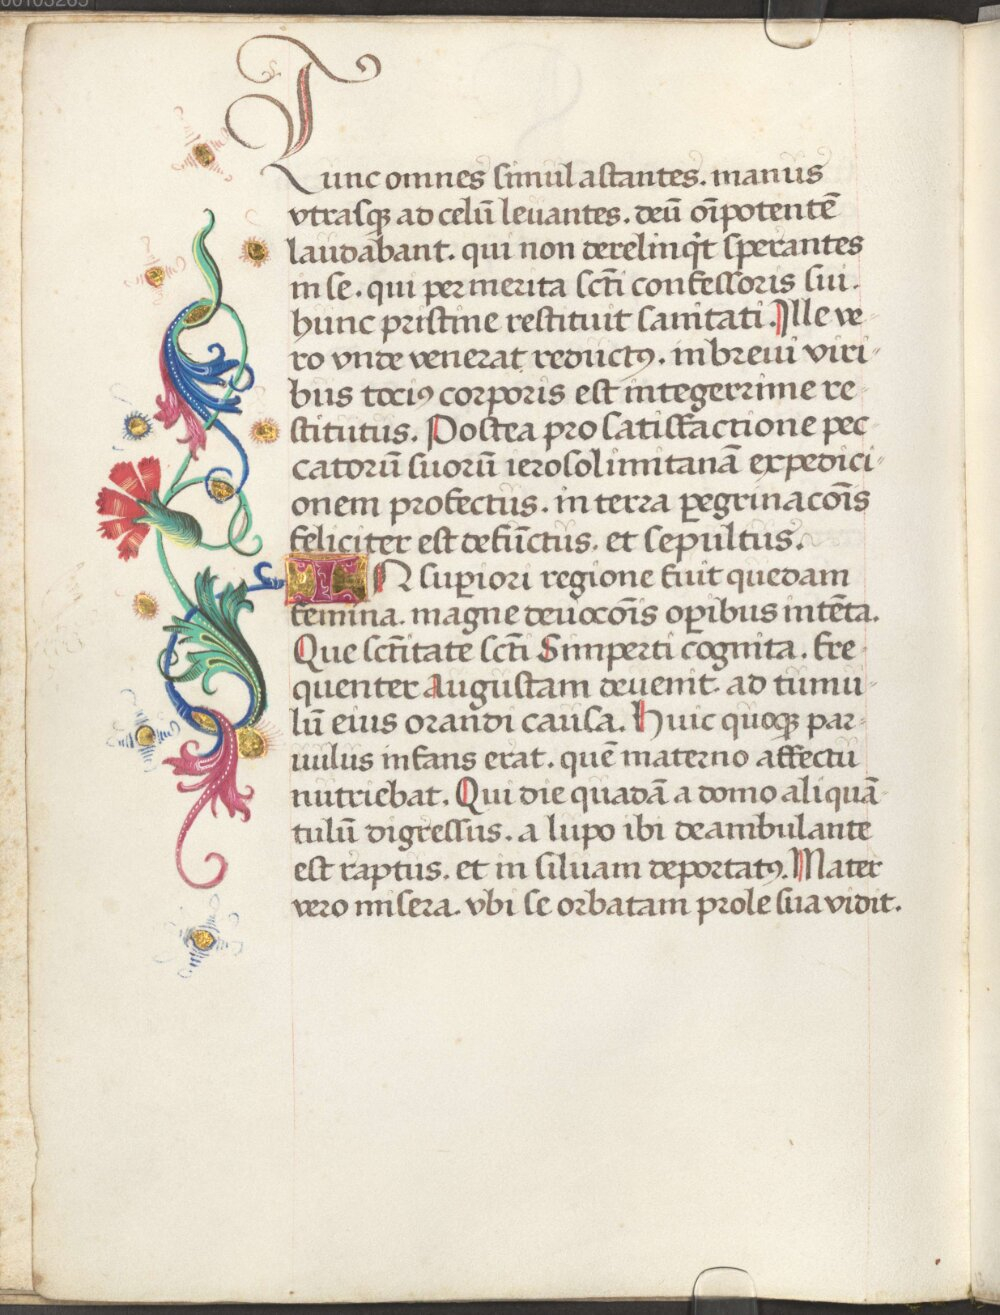 Tunc omnes simul astantes. manus
vtrasqꝫ ad celū leuantes. deū oīpotentē
laudabant. qui non derelinq̄t sperantes
in se. qui per merita sc̄ti confessoris sui.
hunc pristine restituit sanitati. Ille ve-
ro vnde venerat reductꝯ. in breui viri-
bus tociꝯ corporis est integerrime re-
stitutus. Postea pro satisfactione pec-
catorū suorū ierosolimitanā expedici-
onem profectus. in terra ꝑegrinacōīs
feliciter est defūctus. et sepultus.
IN suꝑiori regione fuit quedam
femina. magne deuocōīs oꝑibus intēta.
Que sc̄titate sc̄ti Simperti cognita. fre-
quenter Augustam deuenit. ad tumu-
lū eius orandi causa. Huic quoqꝫ par-
uulus infans erat. quē materno affectu
nutriebat. Qui die quadā a domo aliquā-
tulū digressus. a lupo ibi deambulante
est raptus. et in siluam deportatꝯ. Mater
vero misera. vbi se orbatam prole sua vidit.